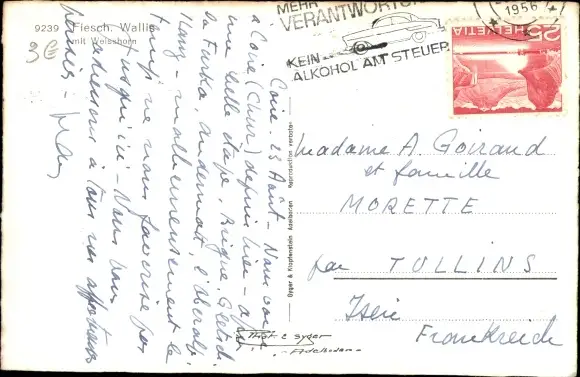 9239 Fiesch. Wallis
mit Weisshorn
3€
Coire. 23 Août - Nous voici
à Coire (Chur) depuis hier - a
une belle étape, Brigue, Gletsch,
la Furka, Andermatt, l'Oberalp,
Ilanz - malheureusement le
temps ne nous favorise pas
jusqu'ici - Nous vous
adressons à tous nos affectueux
Gyger & Klopfenstein Adelboden Reproduction verboten
MEHR
VERANTWORTUNG
KEIN
ALKOHOL AM STEUER
1956
HELVETIA
25
Madame A. Goirand
et famille
MORETTE
par TULLINS
Isère
Frankreich
Phot E Gyger
Adelboden